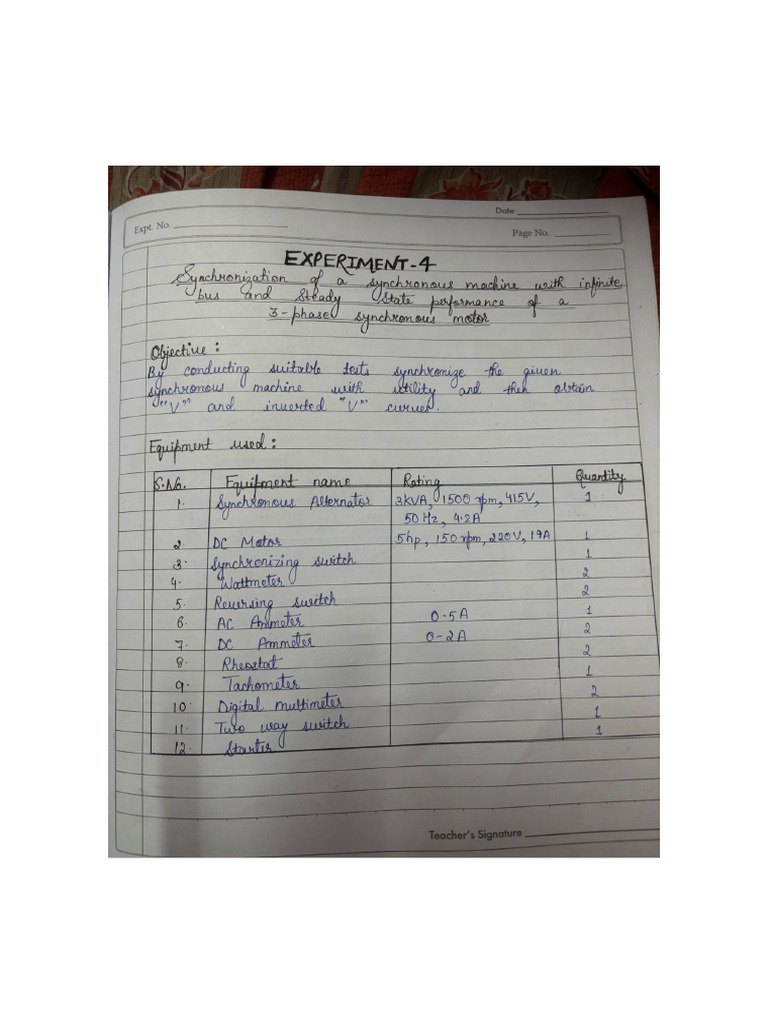 Date
Expt. No.
Page No.
EXPERIMENT-4
Synchronization of a synchronous machine with infinite
bus and steady state performance of a
3-phase synchronous motor
Objective :
By conducting suitable tests synchronize the given
synchronous machine with utility and then obtain
"V" and inverted "V" curves.
Equipment used :
S.No. Equipment name Rating Quantity
1. Synchronous Alternator 3KVA, 1500 rpm, 415V, 1
50 Hz, 4.2A
2. DC Motor 5hp, 150 rpm, 220V, 19A 1
3. Synchronizing switch 1
4. Wattmeter 2
5. Reversing switch 2
6. AC Ammeter 0-5A 1
7. DC Ammeter 0-2A 2
8. Rheostat 2
9. Tachometer 1
10. Digital multimeter 2
11. Two way switch 1
12. Starter 1
Teacher's Signature